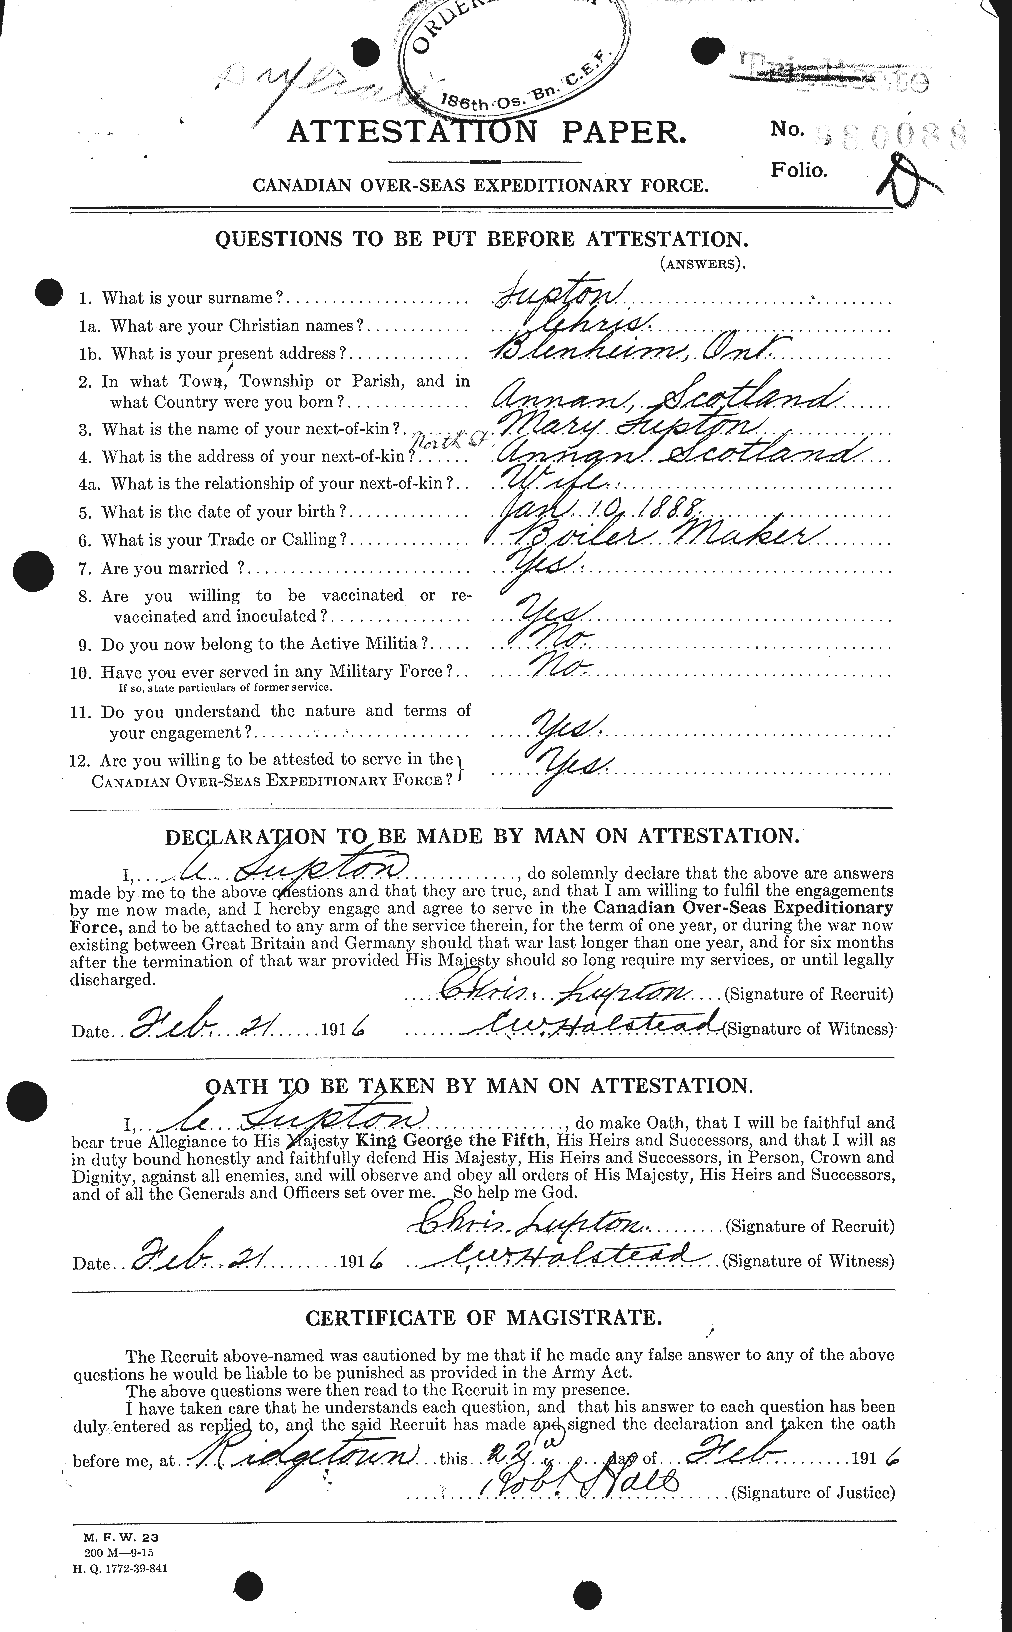 ORDER
186th Os. Bn. C.E.F.
ATTESTATION PAPER.
No. 880088
Folio.
CANADIAN OVER-SEAS EXPEDITIONARY FORCE.
QUESTIONS TO BE PUT BEFORE ATTESTATION.
(ANSWERS).
1. What is your surname? Lupton
1a. What are your Christian names? Chris.
1b. What is your present address? Blenheim, Ont.
2. In what Town, Township or Parish, and in
what Country were you born? Annan, Scotland
3. What is the name of your next-of-kin? Mary Lupton
4. What is the address of your next-of-kin? North St. Annan Scotland
4a. What is the relationship of your next-of-kin? Wife.
5. What is the date of your birth? Jan 10, 1888
6. What is your Trade or Calling? Boiler Maker
7. Are you married ? Yes.
8. Are you willing to be vaccinated or re-
vaccinated and inoculated? Yes
9. Do you now belong to the Active Militia? No.
10. Have you ever served in any Military Force? No.
If so, state particulars of former service.
11. Do you understand the nature and terms of
your engagement? Yes.
12. Are you willing to be attested to serve in the
CANADIAN OVER-SEAS EXPEDITIONARY FORCE? Yes.
DECLARATION TO BE MADE BY MAN ON ATTESTATION.
I, C Lupton, do solemnly declare that the above are answers
made by me to the above questions and that they are true, and that I am willing to fulfil the engagements
by me now made, and I hereby engage and agree to serve in the Canadian Over-Seas Expeditionary
Force, and to be attached to any arm of the service therein, for the term of one year, or during the war now
existing between Great Britain and Germany should that war last longer than one year, and for six months
after the termination of that war provided His Majesty should so long require my services, or until legally
discharged.
Chris. Lupton (Signature of Recruit)
Date Feb 21 1916 C W Halstead (Signature of Witness)
OATH TO BE TAKEN BY MAN ON ATTESTATION.
I, C Lupton, do make Oath, that I will be faithful and
bear true Allegiance to His Majesty King George the Fifth, His Heirs and Successors, and that I will as
in duty bound honestly and faithfully defend His Majesty, His Heirs and Successors, in Person, Crown and
Dignity, against all enemies, and will observe and obey all orders of His Majesty, His Heirs and Successors,
and of all the Generals and Officers set over me. So help me God.
Chris. Lupton. (Signature of Recruit)
Date Feb 21 1916 C W Halstead (Signature of Witness)
CERTIFICATE OF MAGISTRATE.
The Recruit above-named was cautioned by me that if he made any false answer to any of the above
questions he would be liable to be punished as provided in the Army Act.
The above questions were then read to the Recruit in my presence.
I have taken care that he understands each question, and that his answer to each question has been
duly entered as replied to, and the said Recruit has made and signed the declaration and taken the oath
before me, at Ridgetown this 22d day of Feb 1916
Robt Hall (Signature of Justice)
M. F. W. 23
200 M—9-15
H. Q. 1772-39-841